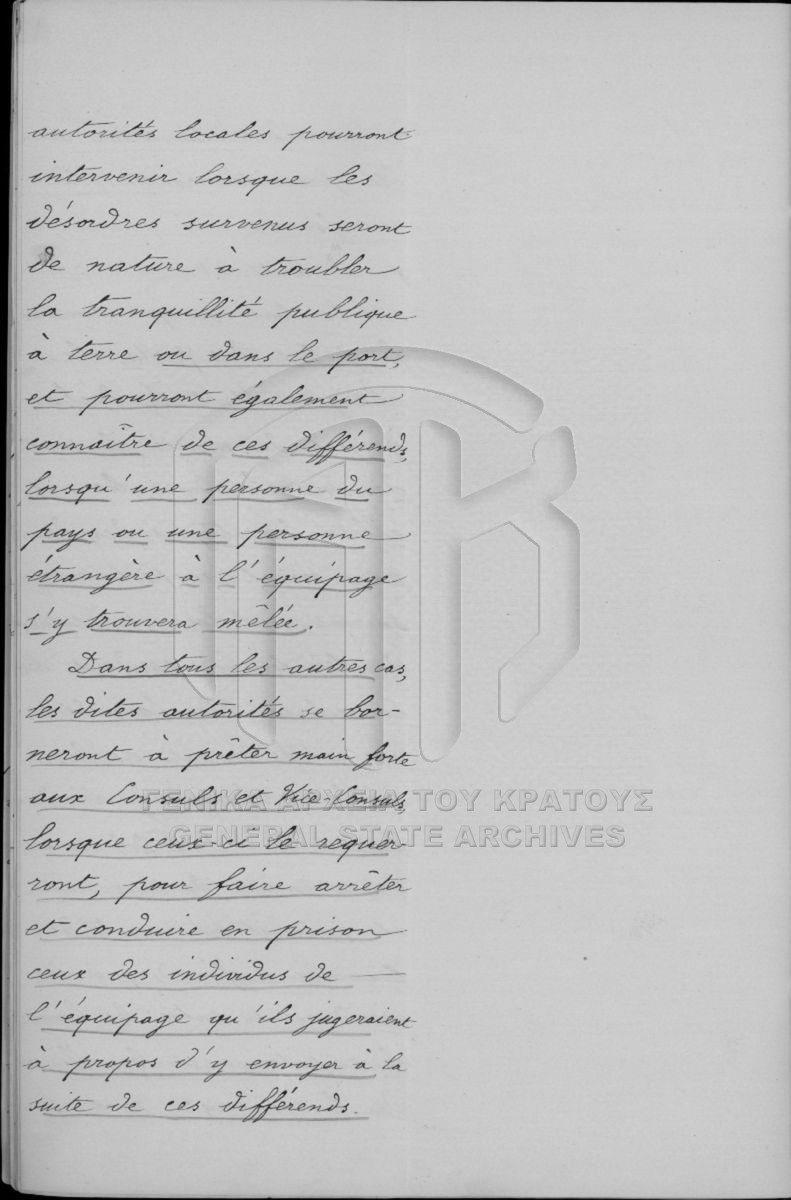 autorités locales pourront
intervenir lorsque les
désordres survenus seront
de nature à troubler
la tranquillité publique
à terre ou dans le port,
et pourront également
connaître de ces différends,
lorsqu'une personne du
pays ou une personne
étrangère à l'équipage
s'y trouvera mêlée.
Dans tous les autres cas,
les dites autorités se bor-
neront à prêter main forte
aux Consuls et Vice-Consuls,
lorsque ceux-ci le requer-
ront, pour faire arrêter
et conduire en prison
ceux des individus de
l'équipage qu'ils jugeraient
à propos d'y envoyer à la
suite de ces différends.
ΓΕΝΙΚΑ ΑΡΧΕΙΑ ΤΟΥ ΚΡΑΤΟΥΣ
GENERAL STATE ARCHIVES